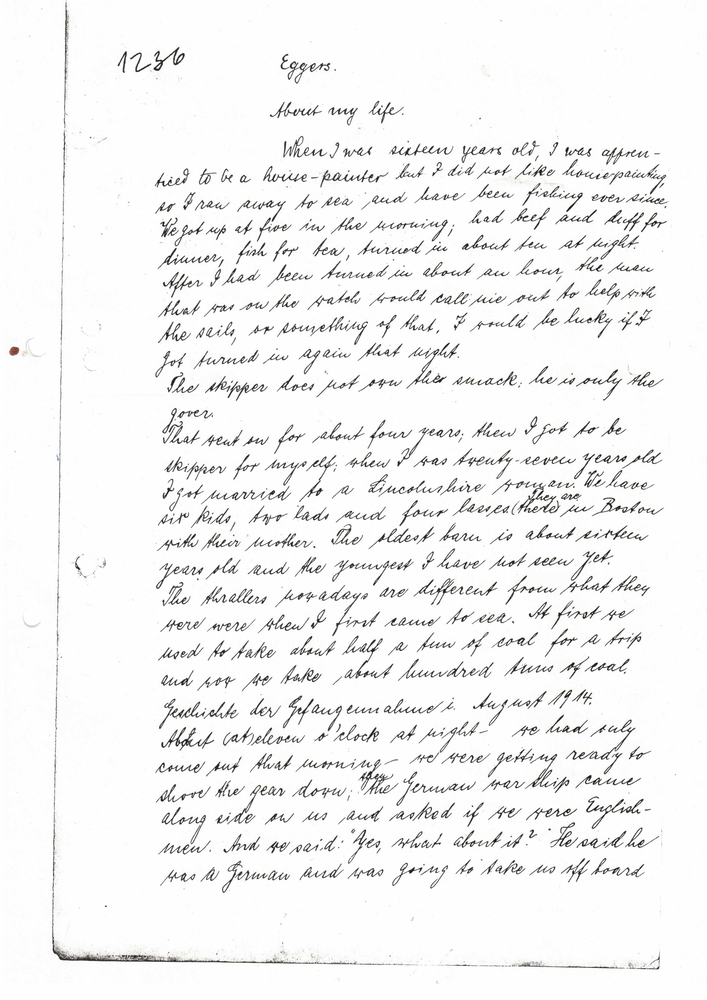 1236
Eggers.
About my life.
When I was sixteen years old, I was appren-
ticed to be a house-painter but I did not like housepainting,
so I ran away to sea and have been fishing ever since.
We got up at five in the morning; had beef and duff for
dinner, fish for tea, turned in about ten at night.
After I had been turned in about an hour, the man
that was on the watch would call me out to help with
the sails, or something of that. I would be lucky if I
got turned in again that night.
The skipper does not own the smack; he is only the
gover.
That went on for about four years; then I got to be
skipper for myself; when I was twenty-seven years old
I got married to a Lincolnshire woman. We have
they are
six kids, two lads and four lasses (there) in Boston
with their mother. The oldest barn is about sixteen
years old and the youngest I have not seen yet.
The thrallers nowadays are different from what they
were were when I first came to sea. At first we
used to take about half a tun of coal for a trip
and now we take about hundred tuns of coal.
Geschichte der Gefangennahme i. August 1914.
About (at) eleven o'clock at night – we had only
come out that morning – we were getting ready to
when
shove the gear down; the German war ship came
along side on us and asked if we were English-
men. And we said: "Yes, what about it?" He said he
was a German and was going to take us off board